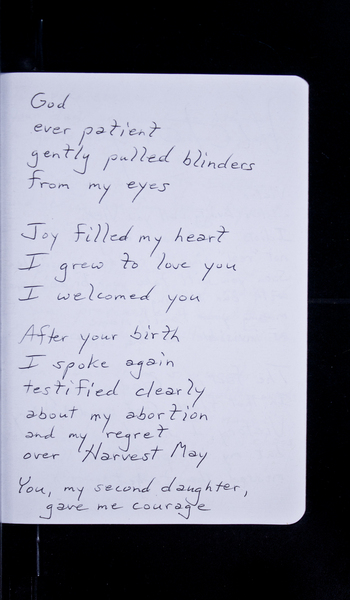 God
ever patient
gently pulled blinders
from my eyes
Joy filled my heart
I grew to love you
I welcomed you
After your birth
I spoke again
testified clearly
about my abortion
and my regret
over Harvest May
You, my second daughter,
gave me courage